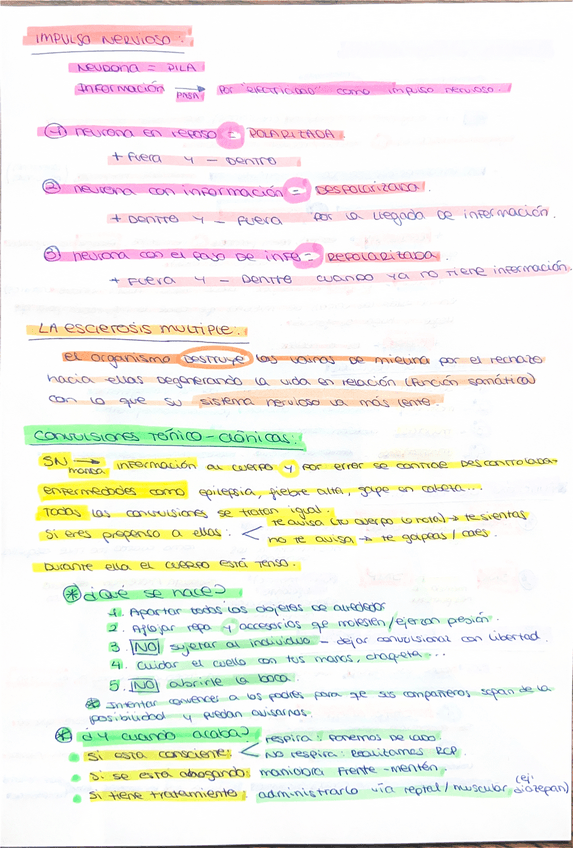 IMPULSO NERVIOSO:
NEURONA = PILA
INFORMACIÓN → PASA por "ELECTRICIDAD" como impulso nervioso.
① neurona en reposo = POLARIZADA.
+ Fuera y - Dentro
② neurona con información = Despolarizada.
+ Dentro y - Fuera por la llegada de información.
③ neurona con el paso de info = Repolarizada.
+ Fuera y - Dentro cuando ya no tiene información.
LA ESCLEROSIS MULTIPLE:
El organismo DESTRUYE las vainas de mielina por el rechazo
hacia ellas degenerando la vida en relación (función somática)
con lo que su sistema nervioso va más lento.
CONVULSIONES TÓNICO-CLÓNICAS:
SN → manda información al cuerpo y por error se contrae descontrolada.
enfermedades como epilepsia, fiebre alta, golpe en cabeza...
Todas las convulsiones se tratan igual.
Si eres propenso a ellas: < te avisa (tu cuerpo lo nota) → te sientas
no te avisa → te golpeas / caes.
Durante ella el cuerpo está tenso.
* ¿Qué se hace?
1. Apartar todos los objetos de alrededor
2. Aflojar ropa y accesorios qe molesten/ejerzan presión.
3. NO sujetar al individuo - dejar convulsionar con libertad.
4. Cuidar el cuello con tus manos, chaqueta...
5. NO abrirle la boca.
* Intentar convencer a los padres para qe sus compañeros sepan de la
posibilidad y puedan avisarnos.
* ¿Y cuando acaba?
Si esta consciente: < respira: ponemos de lado.
No respira: Realizamos RCP.
Si se está ahogando: maniobra frente-mentón.
Si tiene tratamiento: administrarlo vía rectal / muscular (ej: diazepan)